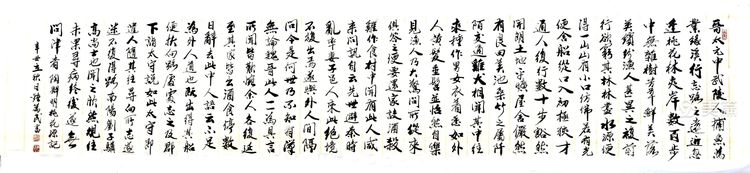 晉太元中武陵人捕魚為
業緣溪行忘路之遠近忽
逢桃花林夾岸數百步
中無雜樹芳草鮮美落
英繽紛漁人甚異之復前
行欲窮其林林盡水源便
得一山山有小口仿佛若有光
便舍船從口入初極狹才
通人復行數十步豁然
開朗土地平曠屋舍儼然
有良田美池桑竹之屬阡
陌交通雞犬相聞其中往
來種作男女衣着悉如外
人黃髮垂髫並怡然自樂
見漁人乃大驚問所從來
具答之便要還家設酒殺
雞作食村中聞有此人咸
來問訊自云先世避秦時
亂率妻子邑人來此絕境
不復出焉遂與外人間隔
問今是何世乃不知有漢
無論魏晉此人一一為具言
所聞皆歎惋餘人各復延
至其家皆出酒食停數
日辭去此中人語云不足
為外人道也既出得其船
便扶向路處處志之及郡
下詣太守說如此太守即
遣人隨其往尋向所志遂
迷不復得路南陽劉子驥
高尚士也聞之欣然規往
未果尋病終後遂無
問津者 陶淵明桃花源記
辛丑秋月鍾萬民書